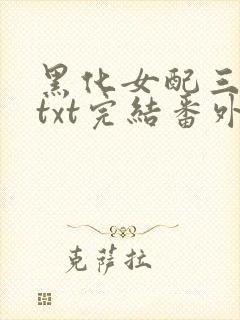 黑化女配三
txt完結番外
克薩拉